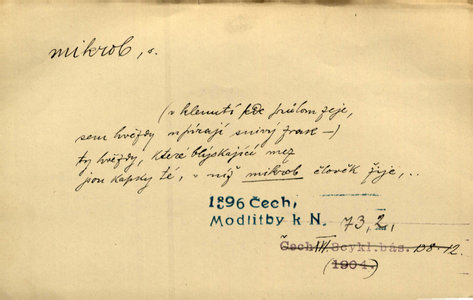 mikrob, s.
(v klenutí kde průlom zeje,
sem hvězdy upírají snivý zrak —)
ty hvězdy, které blýskající mez
jsou kapky té, v níž mikrob člověk žije, ..
1896 Čech,
Modlitby k N. 73, 2,
Čech III. Scykl. bás. 138.12.
(1904.)